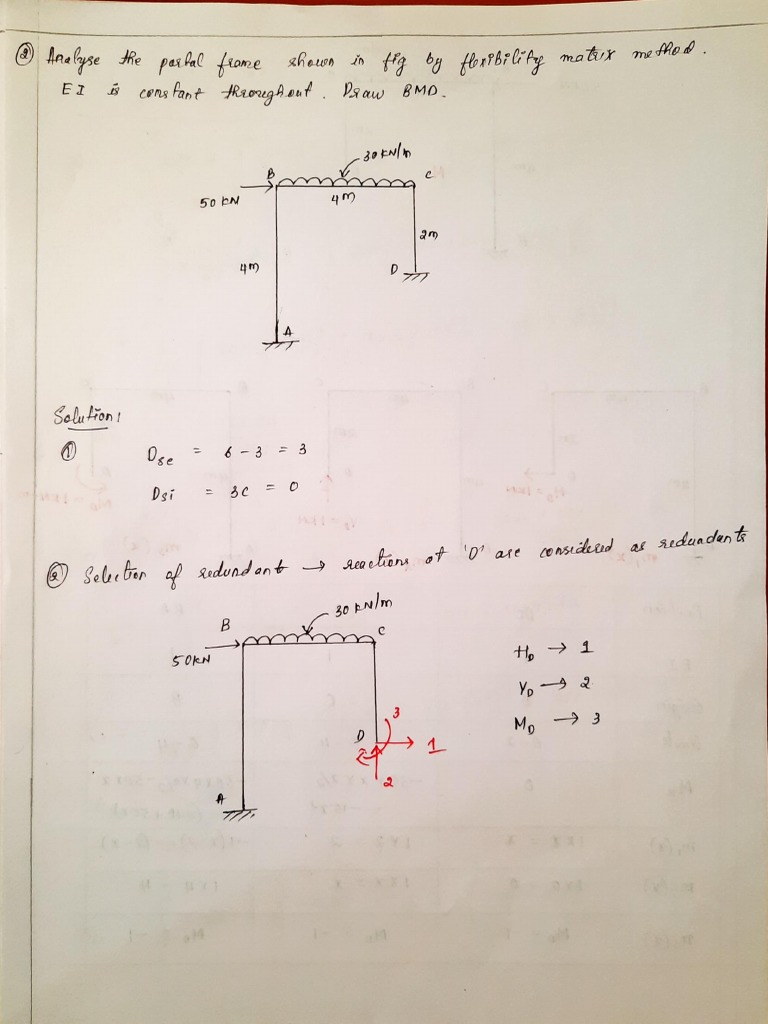 ② Analyse the portal frame shown in fig by flexibility matrix method.
EI is constant throughout. Draw BMD.
30 KN/m
B
C
50 KN
4m
2m
4m
D
A
Solution:
① Dse = 6 - 3 = 3
Dsi = 3C = 0
② Selection of redundant → reactions of 'D' are considered as redundants
30 KN/m
B
C
50KN
H_D → 1
V_D → 2
M_D → 3
3
D
1
2
A